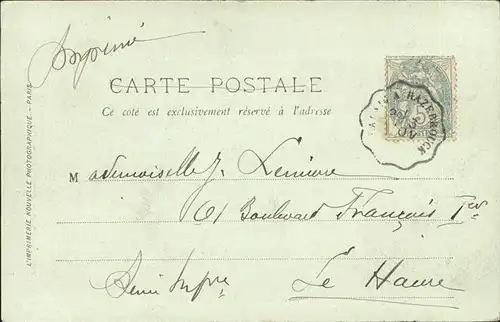 Imprimé
CARTE POSTALE
Ce coté est exclusivement réservé à l'adresse
Mademoiselle J. Lemière
61 Boulevard François 1er
Le Havre
CALAIS A HAZEBROUCK
5
L'IMPRIMERIE NOUVELLE PHOTOGRAPHIQUE. - PARIS